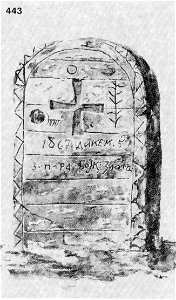 443
1867 ДИКЕМ. 5
З. П. РА. БОЖ. ЗЛАТА